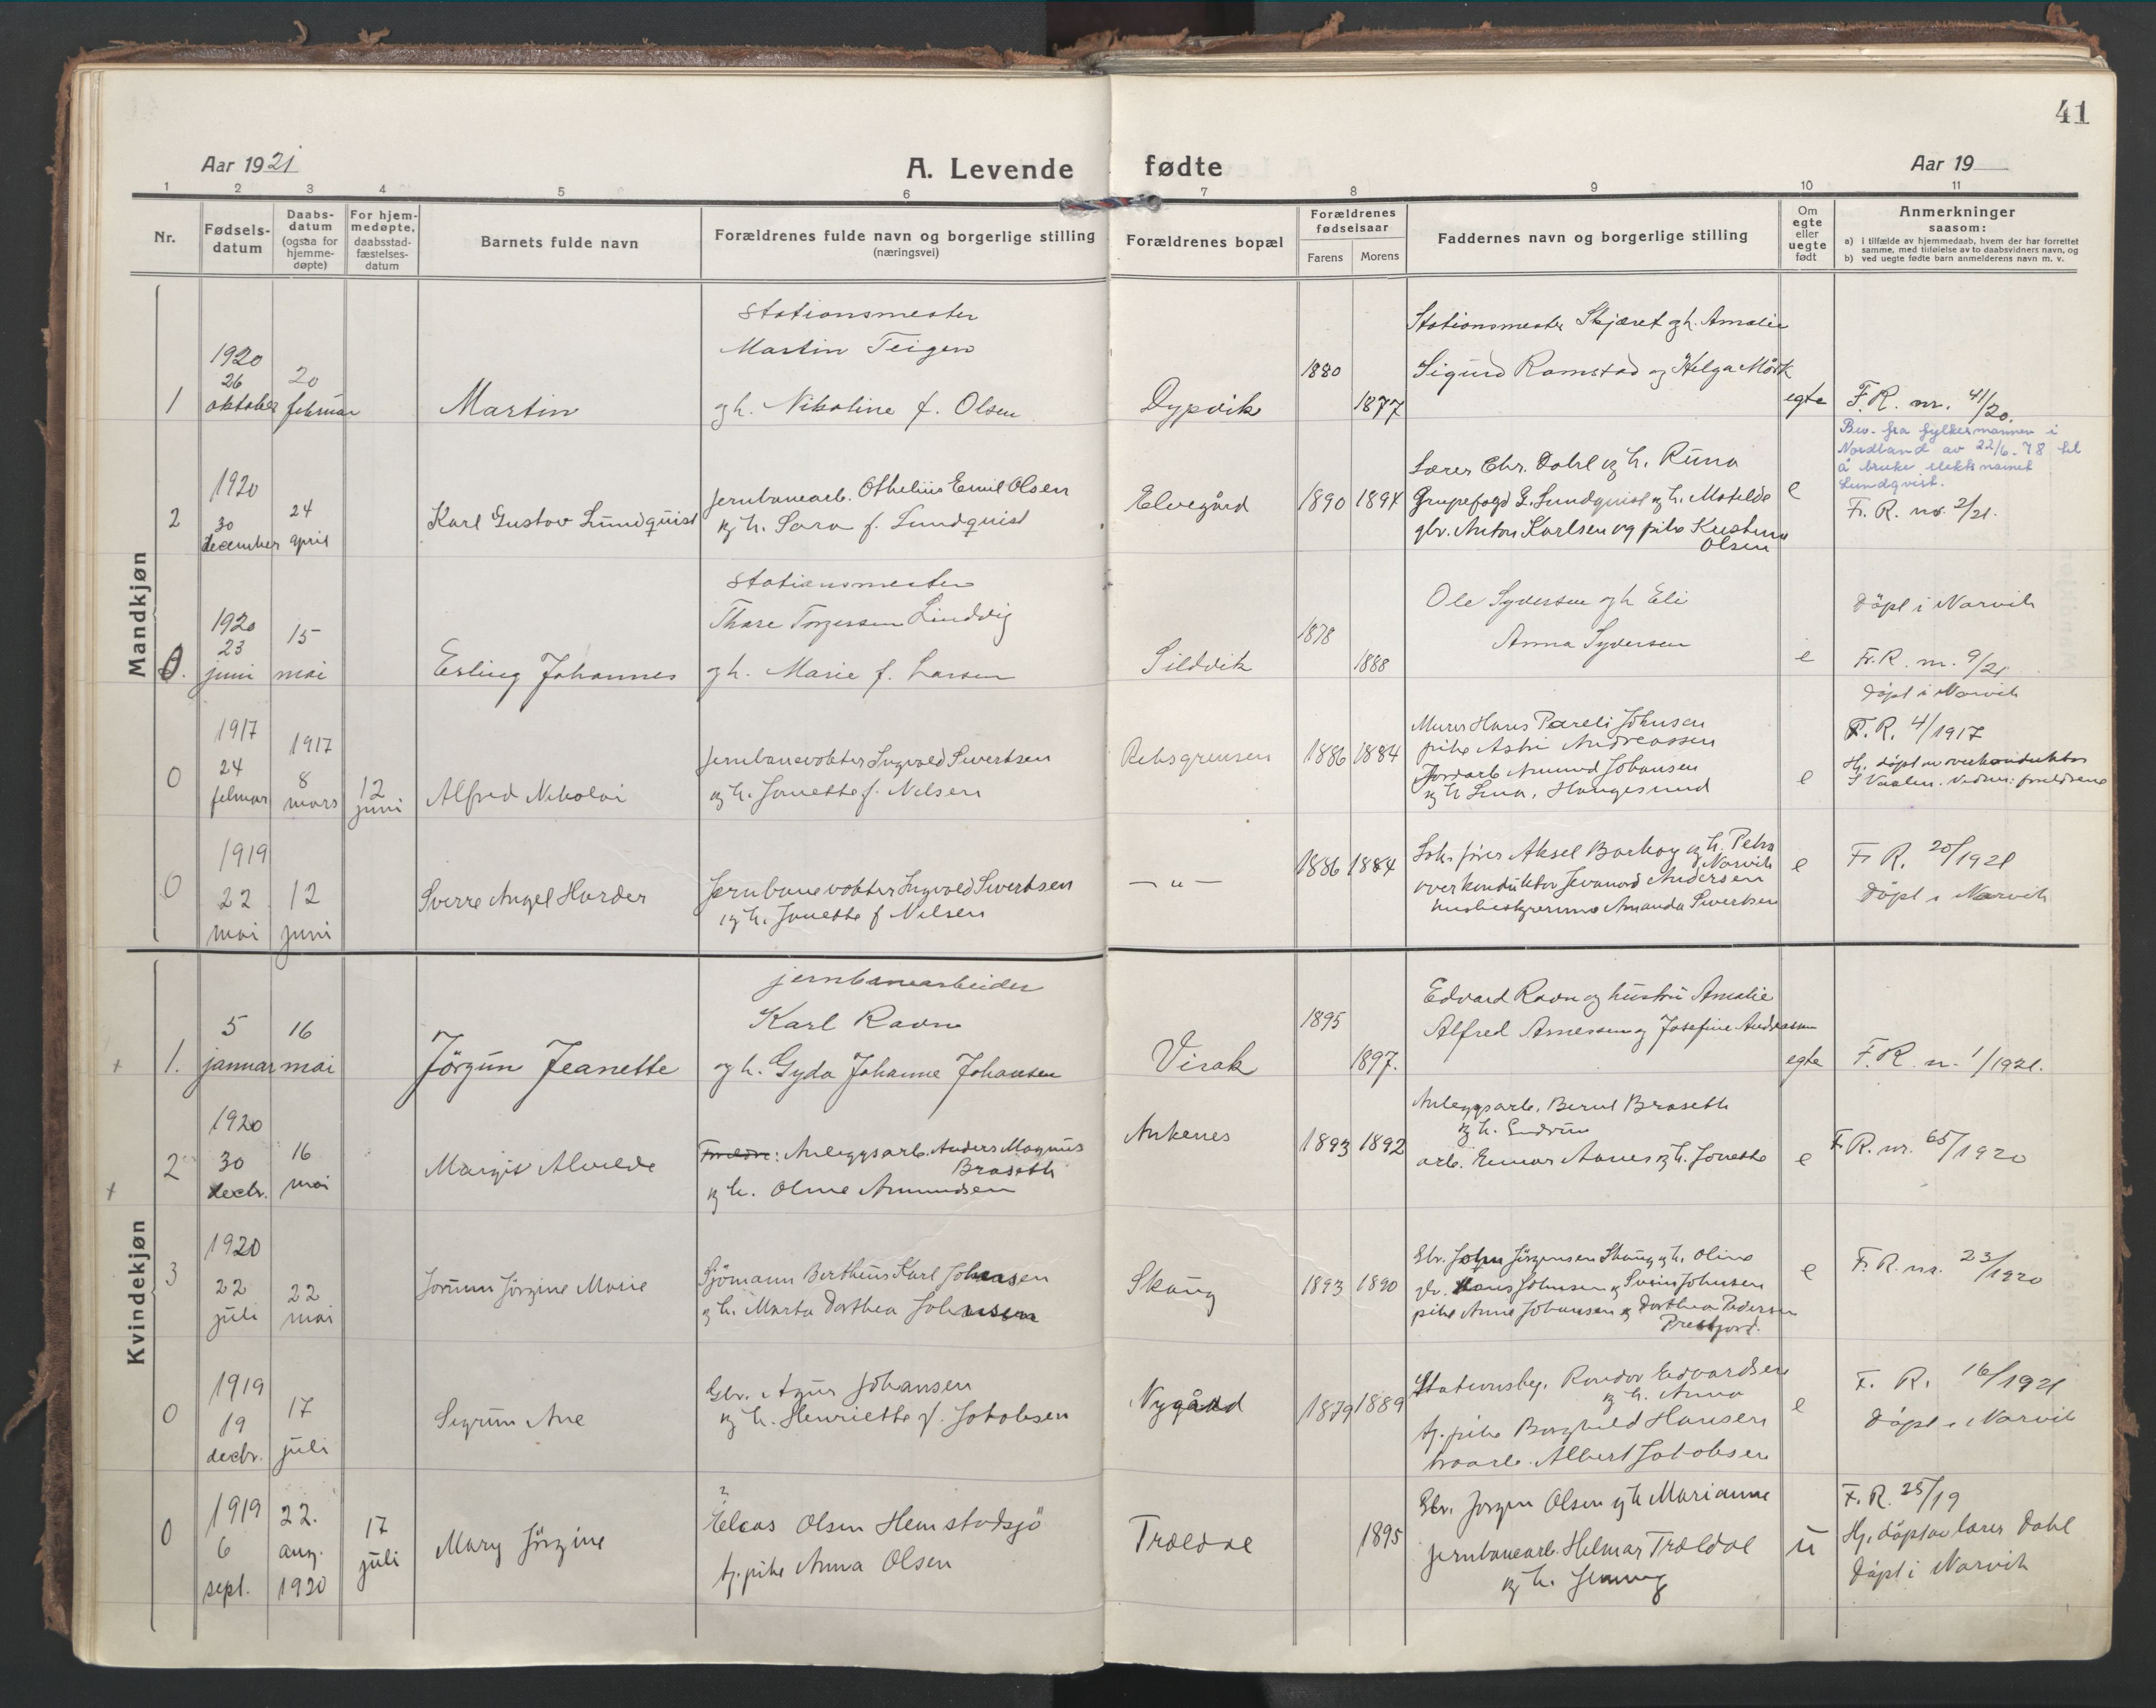 41
Aar 1921
A. Levende fødte
Aar 19
1 2 3 4 5 6 7 8 9 10 11
Nr.
Fødsels-
datum
Daabs-
datum
(ogsaa for
hjemme-
døpte)
For hjem-
medøpte,
daabsstad-
fæstelses-
datum
Barnets fulde navn
Forældrenes fulde navn og borgerlige stilling
(næringsvei)
Forældrenes bopæl
Forældrenes
fødselsaar
Farens Morens
Faddernes navn og borgerlige stilling
Om
egte
eller
uegte
født
Anmerkninger
saasom:
a) i tilfælde av hjemmedaab, hvem der har forrettet
samme, med tilføielse av to daabsvidners navn, og
b) ved uegte fødte barn anmelderens navn m. v.
Mandkjøn
1
1920
26
oktober
20
februar
Martin
Stationsmester
Martin Teigen
og h. Nikoline f. Olsen
Dypvik
1880
1877
Stationsmester Skjæret og h. Amalie
Sigurd Ramstad og Helga Mörk
egte
F. R. nr. 41/20.
Bev. fra fylkesmannen i
Nordland av 22/6-78 til
å bruke slektsnavnet
Lundqvist.
2
1920
30
december
24
april
Karl Gustav Lundquist
Jernbanearb. Othelius Emil Olsen
og h. Sara f. Lundquist
Elvegård
1890 1894
Lærer Chr. Dahl og h. Runa
Grupefogd G. Lundquist og h. Matilde
gbr. Anton Karlsen og pike Kristina
Olsen
e
F. R. nr. 2/21.
0.
1920
23
juni
15
mai
Erling Johannes
Stationsmester
Thore Torgersen Lindvig
og h. Marie f. Larsen
Sildvik
1878
1888
Ole Sydersen og h Eli
Anna Sydersen
e
Döpt i Narvik
F. R. nr. 9/21
0
1917
24
februar
1917
8
mars
12
juni
Alfred Nikolai
Jernbanevokter Ingvald Sivertsen
og h. Jonette f. Nilsen
Riksgrensen
1886 1884
Murer Hans Pareli Johnsen
pike Astri Andreassen
Jordarb Amund Johansen
og h Lina, Haugesund
e
döpt i Narvik
F. R. 4/1917
Hj. döpt av overkonduktör
S Vaalen. Vidner: foreldrene
0
1919
22
mai
12
juni
Sverre Angel Harder
Jernbanevokter Ingvald Sivertsen
og h. Jonette f Nilsen
— „ —
1886 1884
Lok. förer Aksel Barkoy og h. Petra
Narvik
overkonduktör Andersen
Amanda Sivertsen
e
F. R. 20/1921
Döpt i Narvik
Kvindekjøn
+ 1.
5
januar
16
mai
Jörgun Jeanette
jernbanearbeider
Karl Ravn
og h. Gyda Johanne Johansen
Virak
1895
1897.
Edvard Ravn og hustru Amalie
Alfred Arnessen og Josefine Andreassen
egte
F. R. nr. 1/1921.
+ 2
1920
30
decbr.
16
mai
Margit Alvilde
Foreldre: Anleggsarb. Anders Magnus
Braseth
og h. Oline Amundsen
Ankenes
1893 1892
Anleggsarb. Bernt Braseth
og h. Gudrun
arb. Einar Aanes og h. Jonette
e
F. R. nr. 65/1920
3
1920
22
juli
22
mai
Jorunn Jörgine Marie
Sjömann Berthéus Karl Johansen
og h. Marta Dorthea Johansen
Skaug
1893 1890
Gbr. John Jörgensen Skaug og h. Oline
gbr. Hans Johnsen og Svein Johnsen
pike Anna Johansen og Dorthea Pedersen
Prestjord.
e
F. R. nr. 23/1920
0
1919
19
decbr.
17
juli
Sigrun Ane
Gbr. Johansen
og h. Henriette f. Jakobsen
Nygård
1879 1889
Stationsbej. Randor Edvardsen
og h. Anna
tj. pike Borghild Hansen
Albert Jakobsen
e
F. R. 16/1921
döpt i Narvik
0
1919
6
sept.
22.
aug.
1920
17
juli
Mary Jörgine
Elias Olsen Hemstadsjö
tj. pike Anna Olsen
Trældal
1895
Gbr. Jörgen Olsen og h Marianne
Jernbanearb. Helmar Trældal
og h. Jenny
u
F. R. 25/19
Hj. döpt av lærer Dahl
Döpt i Narvik